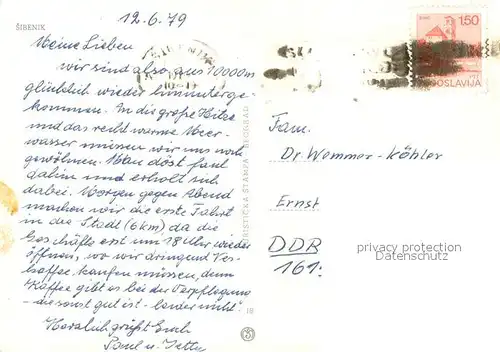 12.6.79
ŠIBENIK
Meine Lieben
wir sind also aus 10000m
glücklich wieder hinunterge-
kommen. In die große Hitze
und das recht warme Meer-
wasser müssen wir uns noch
gewöhnen. Man döst faul
dahin und erholt sich
dabei. Morgen gegen Abend
machen wir die erste Fahrt
in die Stadt (6km), da die
Geschäfte erst um 18 Uhr wieder
öffnen, wo wir dringend Nes-
kaffee kaufen müssen, denn
Kaffee gibt es bei der Verpflegung
- die sonst gut ist - leider nicht.
Herzlich grüßt Euch
Paul u.
TURISTIČKA ŠTAMPA BEOGRAD
1,50
JUGOSLAVIJA
Fam.
Dr. Wommer-Köhler
Ernst
DDR
161
privacy protection
watermark